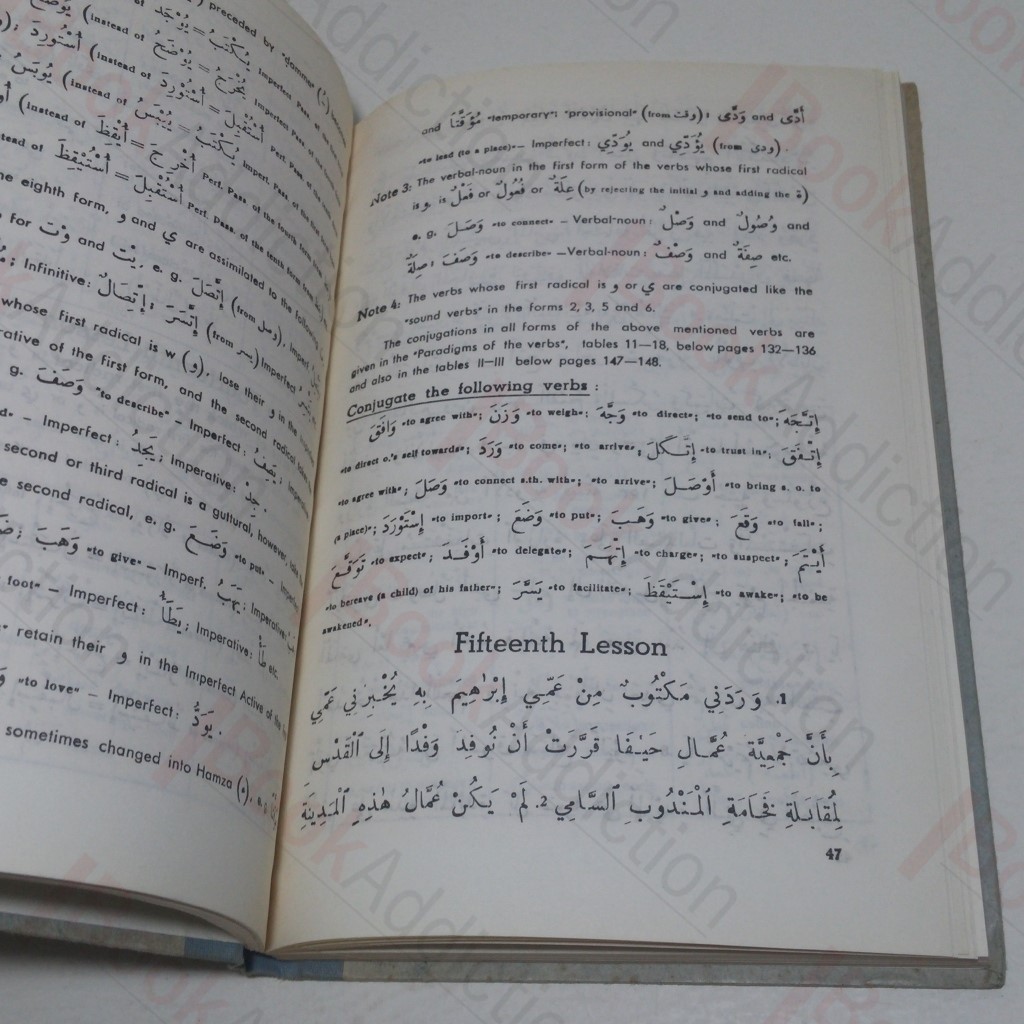 preceded by "dammet"
(instead of يُكْتَبُ = يُوْجَد Imperfect Pass. of the
(instead of يُخْرِجُ = يُوْضِحُ Imperfect
أُسْتُوْرِدَ (instead of أُسْتُقْبِلَ = أُسْتُوْرِدَ Perf. Pass. of
يُوبَسُ (instead of يُكْتَبُ = يُيْبَسُ Imperf. Pass. of the
(instead of أُخْرِجَ = أُيْقِظَ Perf. Pass. of the fourth form
أُسْتُقْبِلَ = أُسْتُيْقِظَ Perf. Pass. of the tenth form
the eighth form, و and ي are assimilated to the following
for وْت and يْت, e. g. إِتَّصَلَ (from وصل), Imperf.
; Infinitive: إِتِّصَالٌ ; إِتَّسَرَ (from يسر) Imperfect
whose first radical is w (و), lose their و in the
rative of the first form, and the second radical
g. وَصَفَ "to describe" – Imperfect: يَصِفُ ;
– Imperfect: يَجِدُ ; Imperative: جِدْ .
second or third radical is a guttural, however,
second radical, e. g. وَضَعَ "to put" – Imperfect
; وَهَبَ "to give" – Imperf. يَهَبُ ; Imperative:
foot" – Imperfect: يَطَأُ ; Imperative: طَأْ etc.
retain their و in the Imperfect Active of the
"to love" – Imperfect: يَوَدُّ .
sometimes changed into Hamza (ء), e.
and مُؤَقَّتًا "temporary"; "provisional" (from وقت) ; وَدَّى and أَدَّى
"to lead (to a place)" – Imperfect: يُوَدِّي and يُؤَدِّي (from ودى) .
Note 3: The verbal-noun in the first form of the verbs whose first radical
is و, is فَعْلٌ or فُعُولٌ or عِلَةٌ (by rejecting the initial و and adding the ة)
e. g. وَصَلَ "to connect" – Verbal-noun: وَصْلٌ and وُصُولٌ and
صِلَةٌ ; وَصَفَ "to describe" – Verbal-noun: وَصْفٌ and صِفَةٌ etc.
Note 4: The verbs whose first radical is و or ي are conjugated like the
"sound verbs" in the forms 2, 3, 5 and 6.
The conjugations in all forms of the above mentioned verbs are
given in the "Paradigms of the verbs", tables 11—18, below pages 132—136
and also in the tables II—III below pages 147—148.
Conjugate the following verbs :
وَافَقَ "to agree with"; وَزَنَ "to weigh"; وَجَّهَ "to direct"; "to send to"; إِتَّجَهَ
"to direct o.'s self towards"; وَرَدَ "to come"; "to arrive"; إِتَّكَلَ "to trust in"; إِتَّفَقَ
"to agree with"; وَصَلَ "to connect s.th. with"; "to arrive"; أَوْصَلَ "to bring s. o. to
(a place)"; إِسْتَوْرَدَ "to import"; وَضَعَ "to put"; وَهَبَ "to give"; وَقَعَ "to fall";
تَوَقَّعَ "to expect"; أَوْفَدَ "to delegate"; إِتَّهَمَ "to charge"; "to suspect"; أَيْتَمَ
"to bereave (a child) of his father"; يَسَّرَ "to facilitate"; إِسْتَيْقَظَ "to awake"; "to be
awakened".
Fifteenth Lesson
1. وَرَدَنِي مَكْتُوبٌ مِنْ عَمِّي إِبْرٰهِيمَ بِهِ يُخْبِرُنِي عَمِّي
بِأَنَّ جَمْعِيَّةَ عُمَّالِ حَيْفَا قَرَّرَتْ أَنْ تُوفِدَ وَفْدًا إِلَى ٱلْقُدْسِ
لِمُقَابَلَةِ فَخَامَةِ ٱلْمَنْدُوبِ ٱلسَّامِي 2. لَمْ يَكُنْ عُمَّالُ هٰذِهِ ٱلْمَدِينَةِ
47